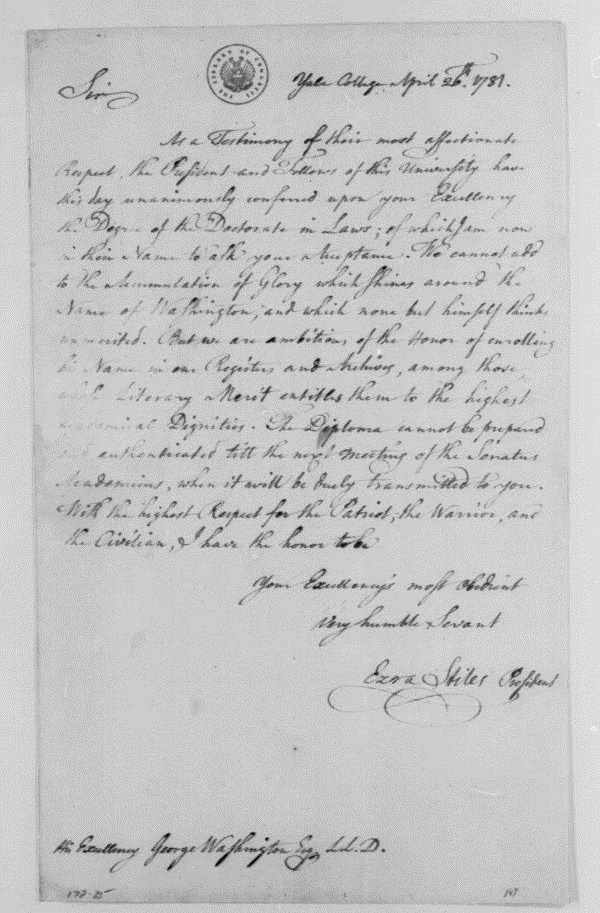 THE LIBRARY OF CONGRESS
Yale College April 26th. 1781.
Sir
As a Testimony of their most affectionate
Respect, the President and Fellows of this University have
this day unanimously conferred upon your Excellency
the Degree of the Doctorate in Laws; of which I am now
in their Name to ask your Acceptance. We cannot add
to the Accumulation of Glory which shines around the
Name of Washington, and which none but himself thinks
unmerited. But we are ambitious of the Honor of enrolling
his Name in our Registers and Archives, among those
whose Literary Merit entitles them to the highest
Academical Dignities. The Diploma cannot be prepared
and authenticated till the next Meeting of the Senatus
Academicus, when it will be duely transmitted to you.
With the highest Respect for the Patriot, the Warrior, and
the Civilian, I have the honor to be
Your Excellency's most obedient
very humble Servant
Ezra Stiles President
His Excellency George Washington Esq LL.D.